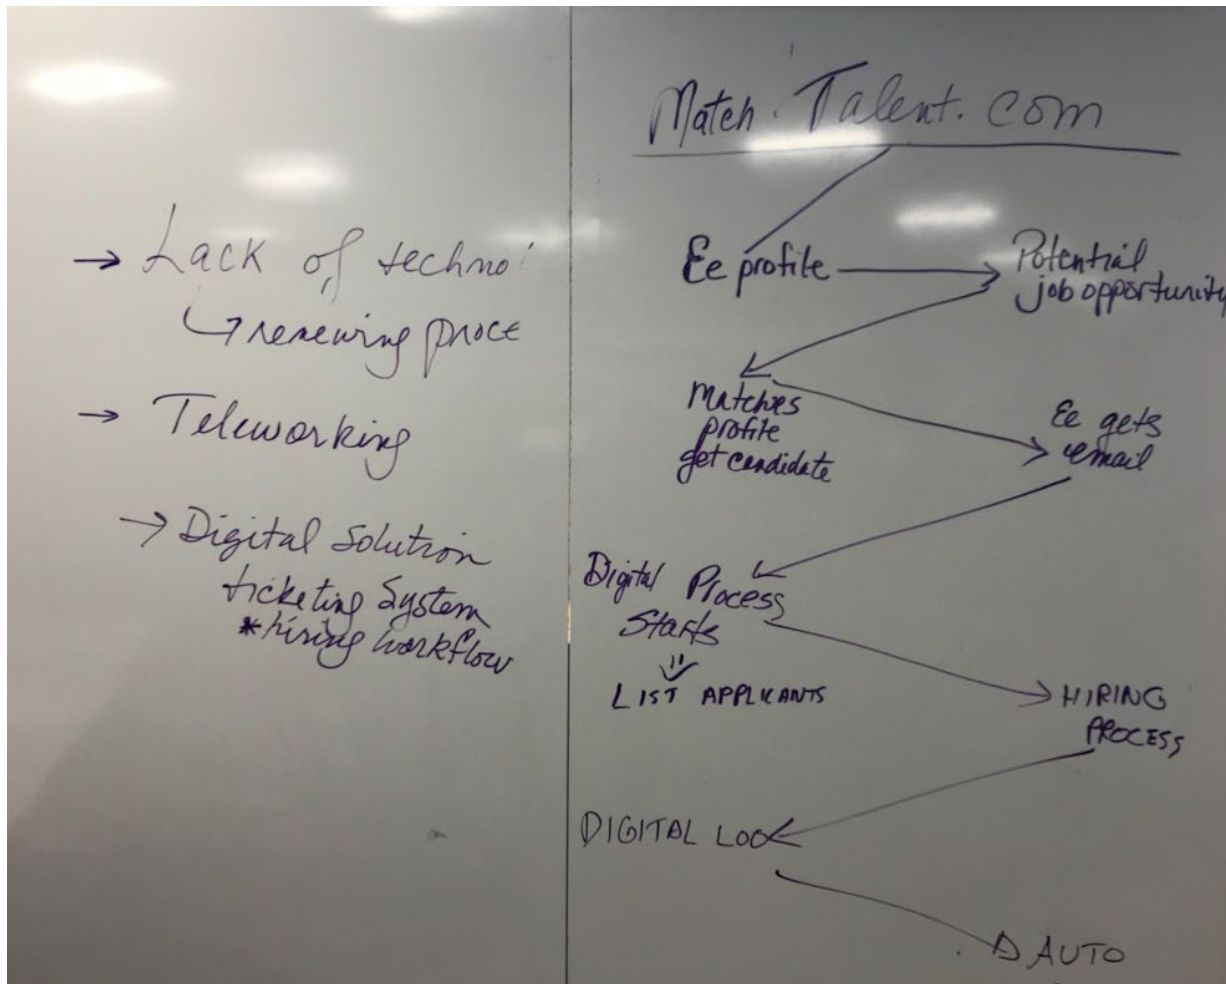 → Lack of techno
↳ renewing proce
→ Teleworking
→ Digital Solution
ticketing System
*hiring workflow
Match.Talent.com
Ee profile → Potential
job opportunity
Matches
profile
get candidate
Ee gets
email
Digital Process
Starts
LIST APPLICANTS
HIRING
PROCESS
DIGITAL
AUTO